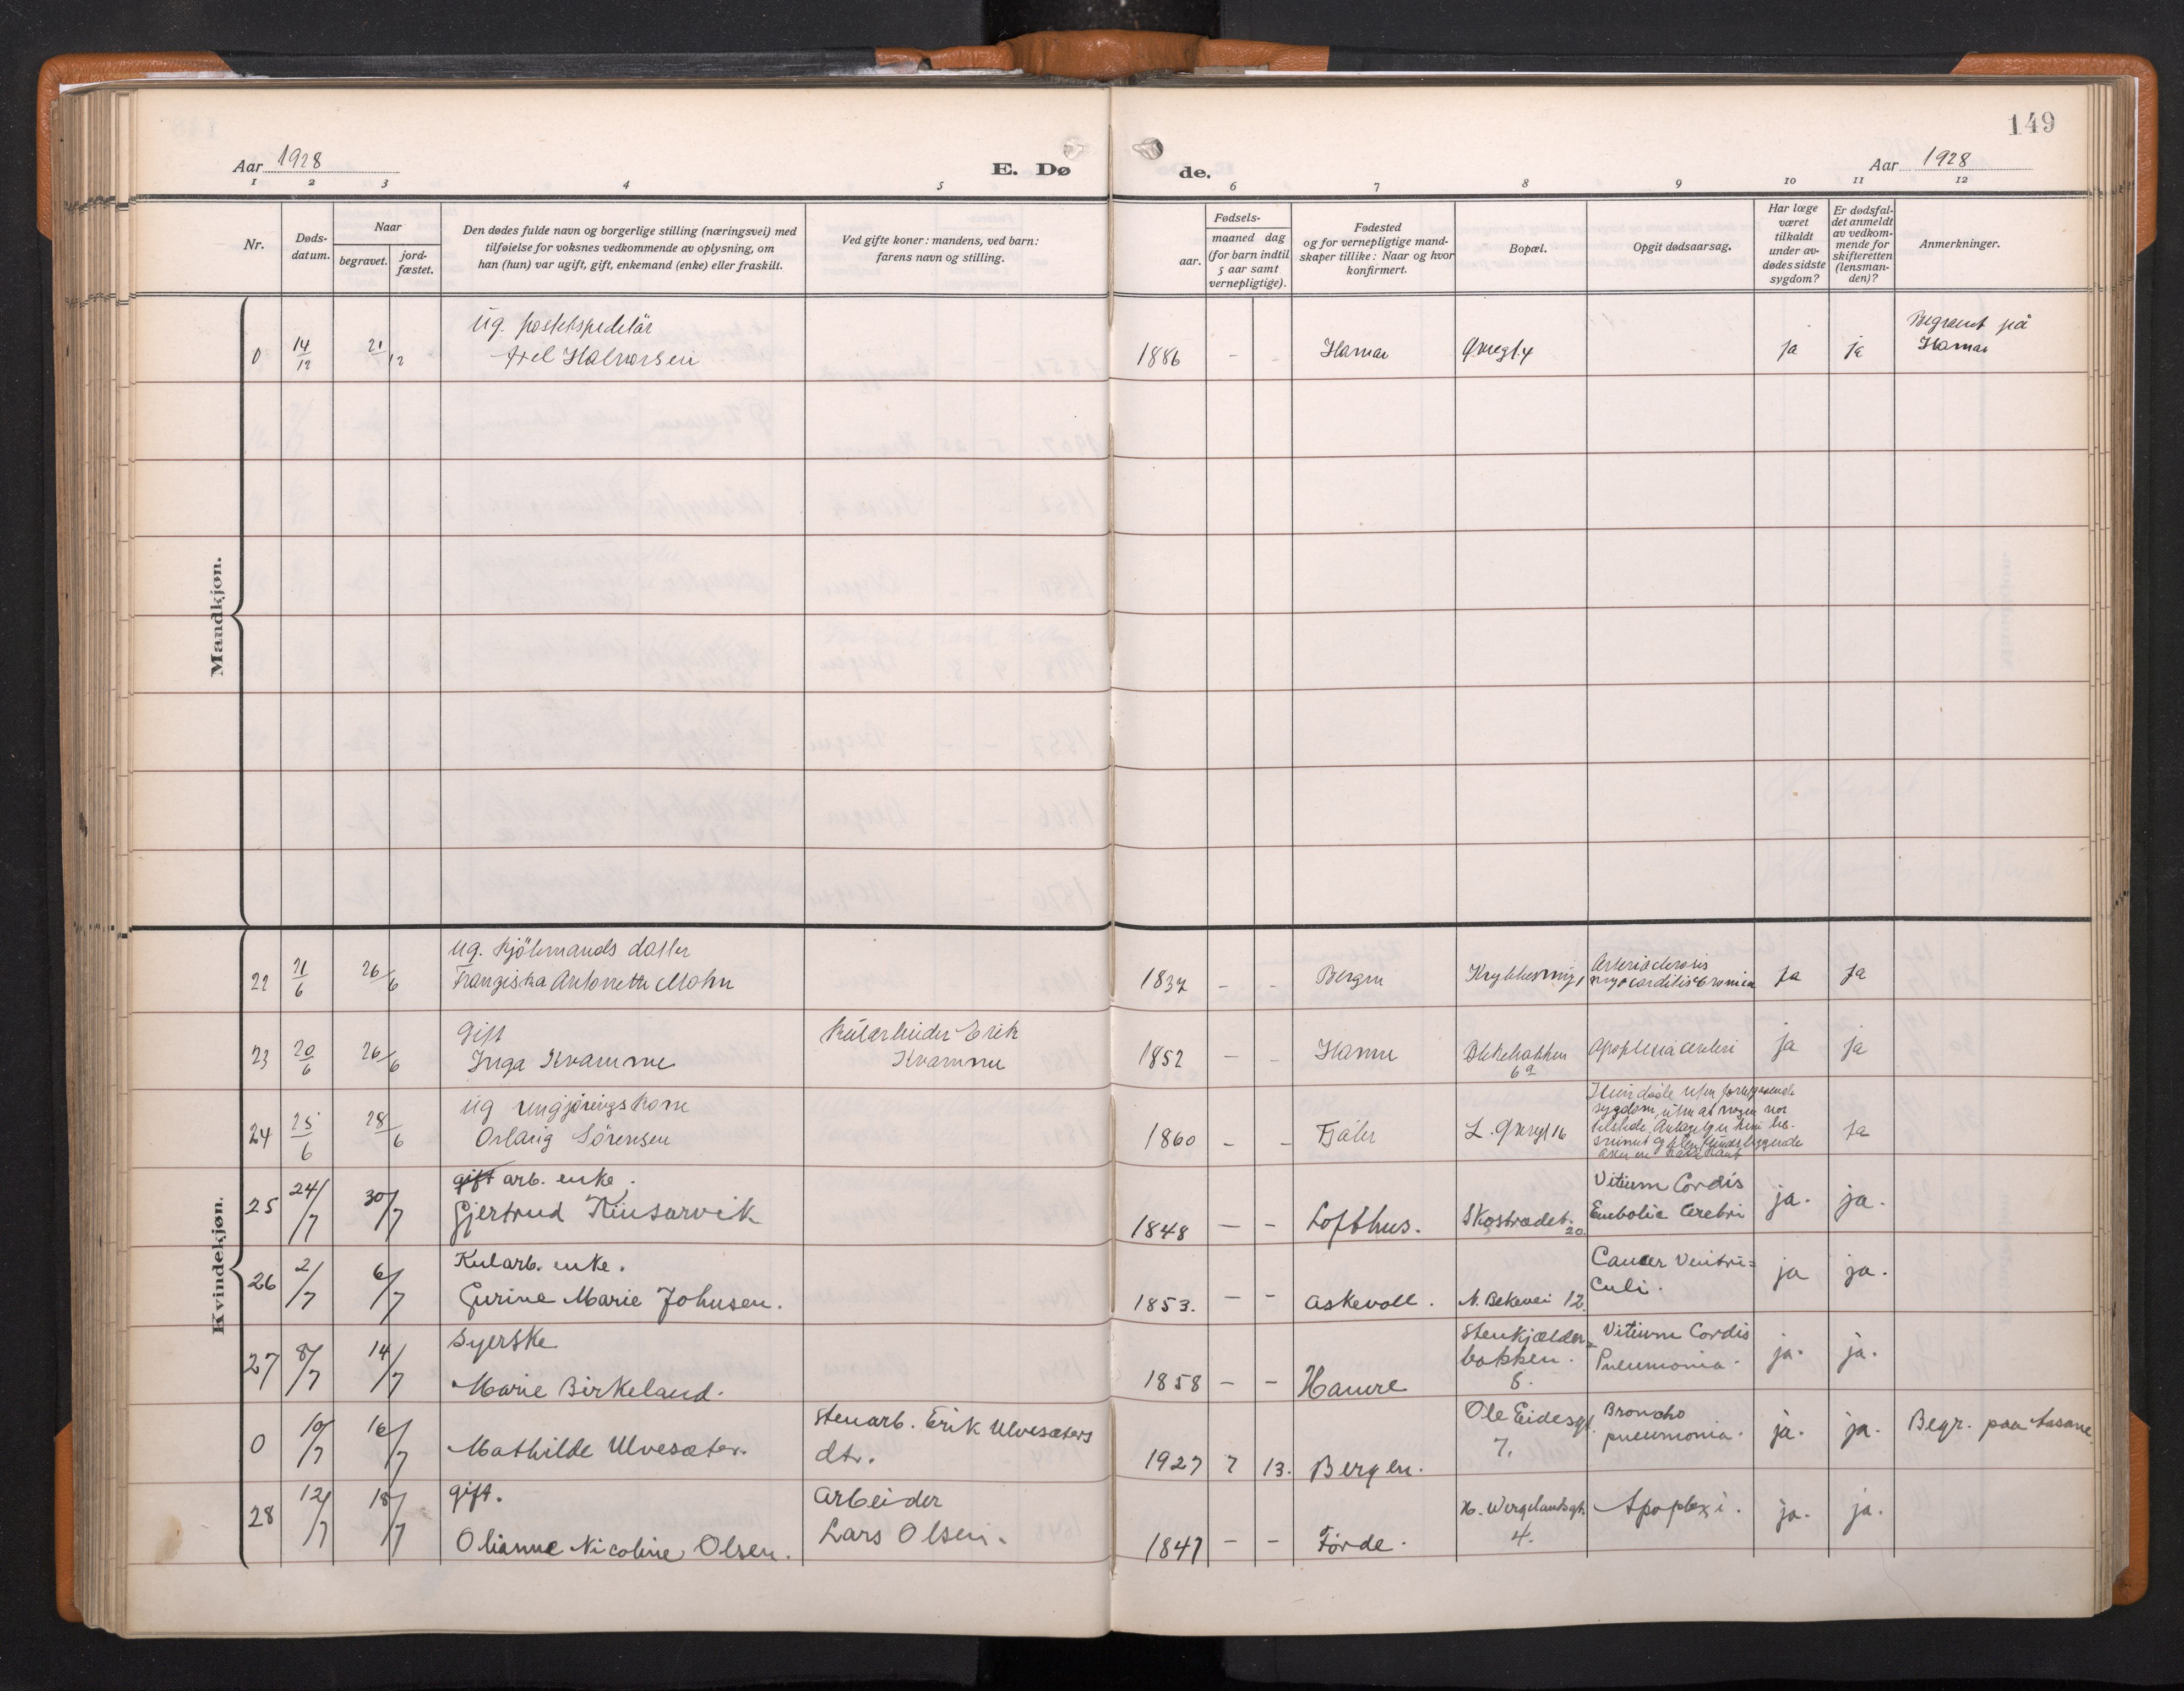 149
Aar 1928
E. Dø
de.
Aar 1928
1 2 3 4 5 6 7 8 9 10 11 12
Nr.
Døds-
datum.
Naar
begravet.
jord-
fæstet.
Den dødes fulde navn og borgerlige stilling (næringsvei) med
tilføielse for voksnes vedkommende av oplysning, om
han (hun) var ugift, gift, enkemand (enke) eller fraskilt.
Ved gifte koner: mandens, ved barn:
farens navn og stilling.
Fødsels-
aar.
maaned dag
(for barn indtil
5 aar samt
vernepligtige).
Fødested
og for vernepligtige mand-
skaper tillike: Naar og hvor
konfirmert.
Bopæl.
Opgit dødsaarsag.
Har læge
været
tilkaldt
under av-
dødes sidste
sygdom?
Er dødsfal-
det anmeldt
av vedkom-
mende for
skifteretten
(lensman-
den)?
Anmerkninger.
Mandkjøn.
Ug. postekspeditør
0 14/12 21/12 Axel Halvorsen 1886 - - Hamar ja ja Begravet på
Hamar
Kvindekjøn.
Ug. kjøbmands datter
22 21/6 26/6 Franziska Antonette Mohn 1837 - - Bergen ja ja
Gift
23 20/6 26/6 Inga Kvamme Erik
Kvamme 1852 - - Hamre 6a Apoplexia cerebri ja ja
Ug rengjøringskone
24 25/6 28/6 Sørensen 1860 - - Fjaler ja
gift arb. enke.
25 24/7 30/7 Gjertrud Kinsarvik 1848 - - Lofthus. Skostrædet 20 Vitium Cordis
Embolia Cerebri ja. ja.
Kularb. enke.
26 2/7 6/7 Gurine Marie Johnsen. 1853. - - Askevoll. N. Bekevei 12. Cancer Ventri=
culi. ja ja.
Syerske
27 8/7 14/7 Marie Birkeland. 1858 - - Hamre Stenkjælder=
bakken.
8. Vitium Cordis
Pneumonia. ja. ja.
0 10/7 16/7 Mathilde Ulvesæter. Stenarb. Erik Ulvesæters
dtr. 1927 7 13. Bergen. Ole Eidesgt.
7. Broncho
pneumonia. ja. ja. Begr. paa Aasane.
gift.
28 12/7 18/7 Olianne Nicoline Olsen. Arbeider
Lars Olsen. 1847 - - Førde. H. Wergelandsgt.
4. Apoplexi. ja. ja.